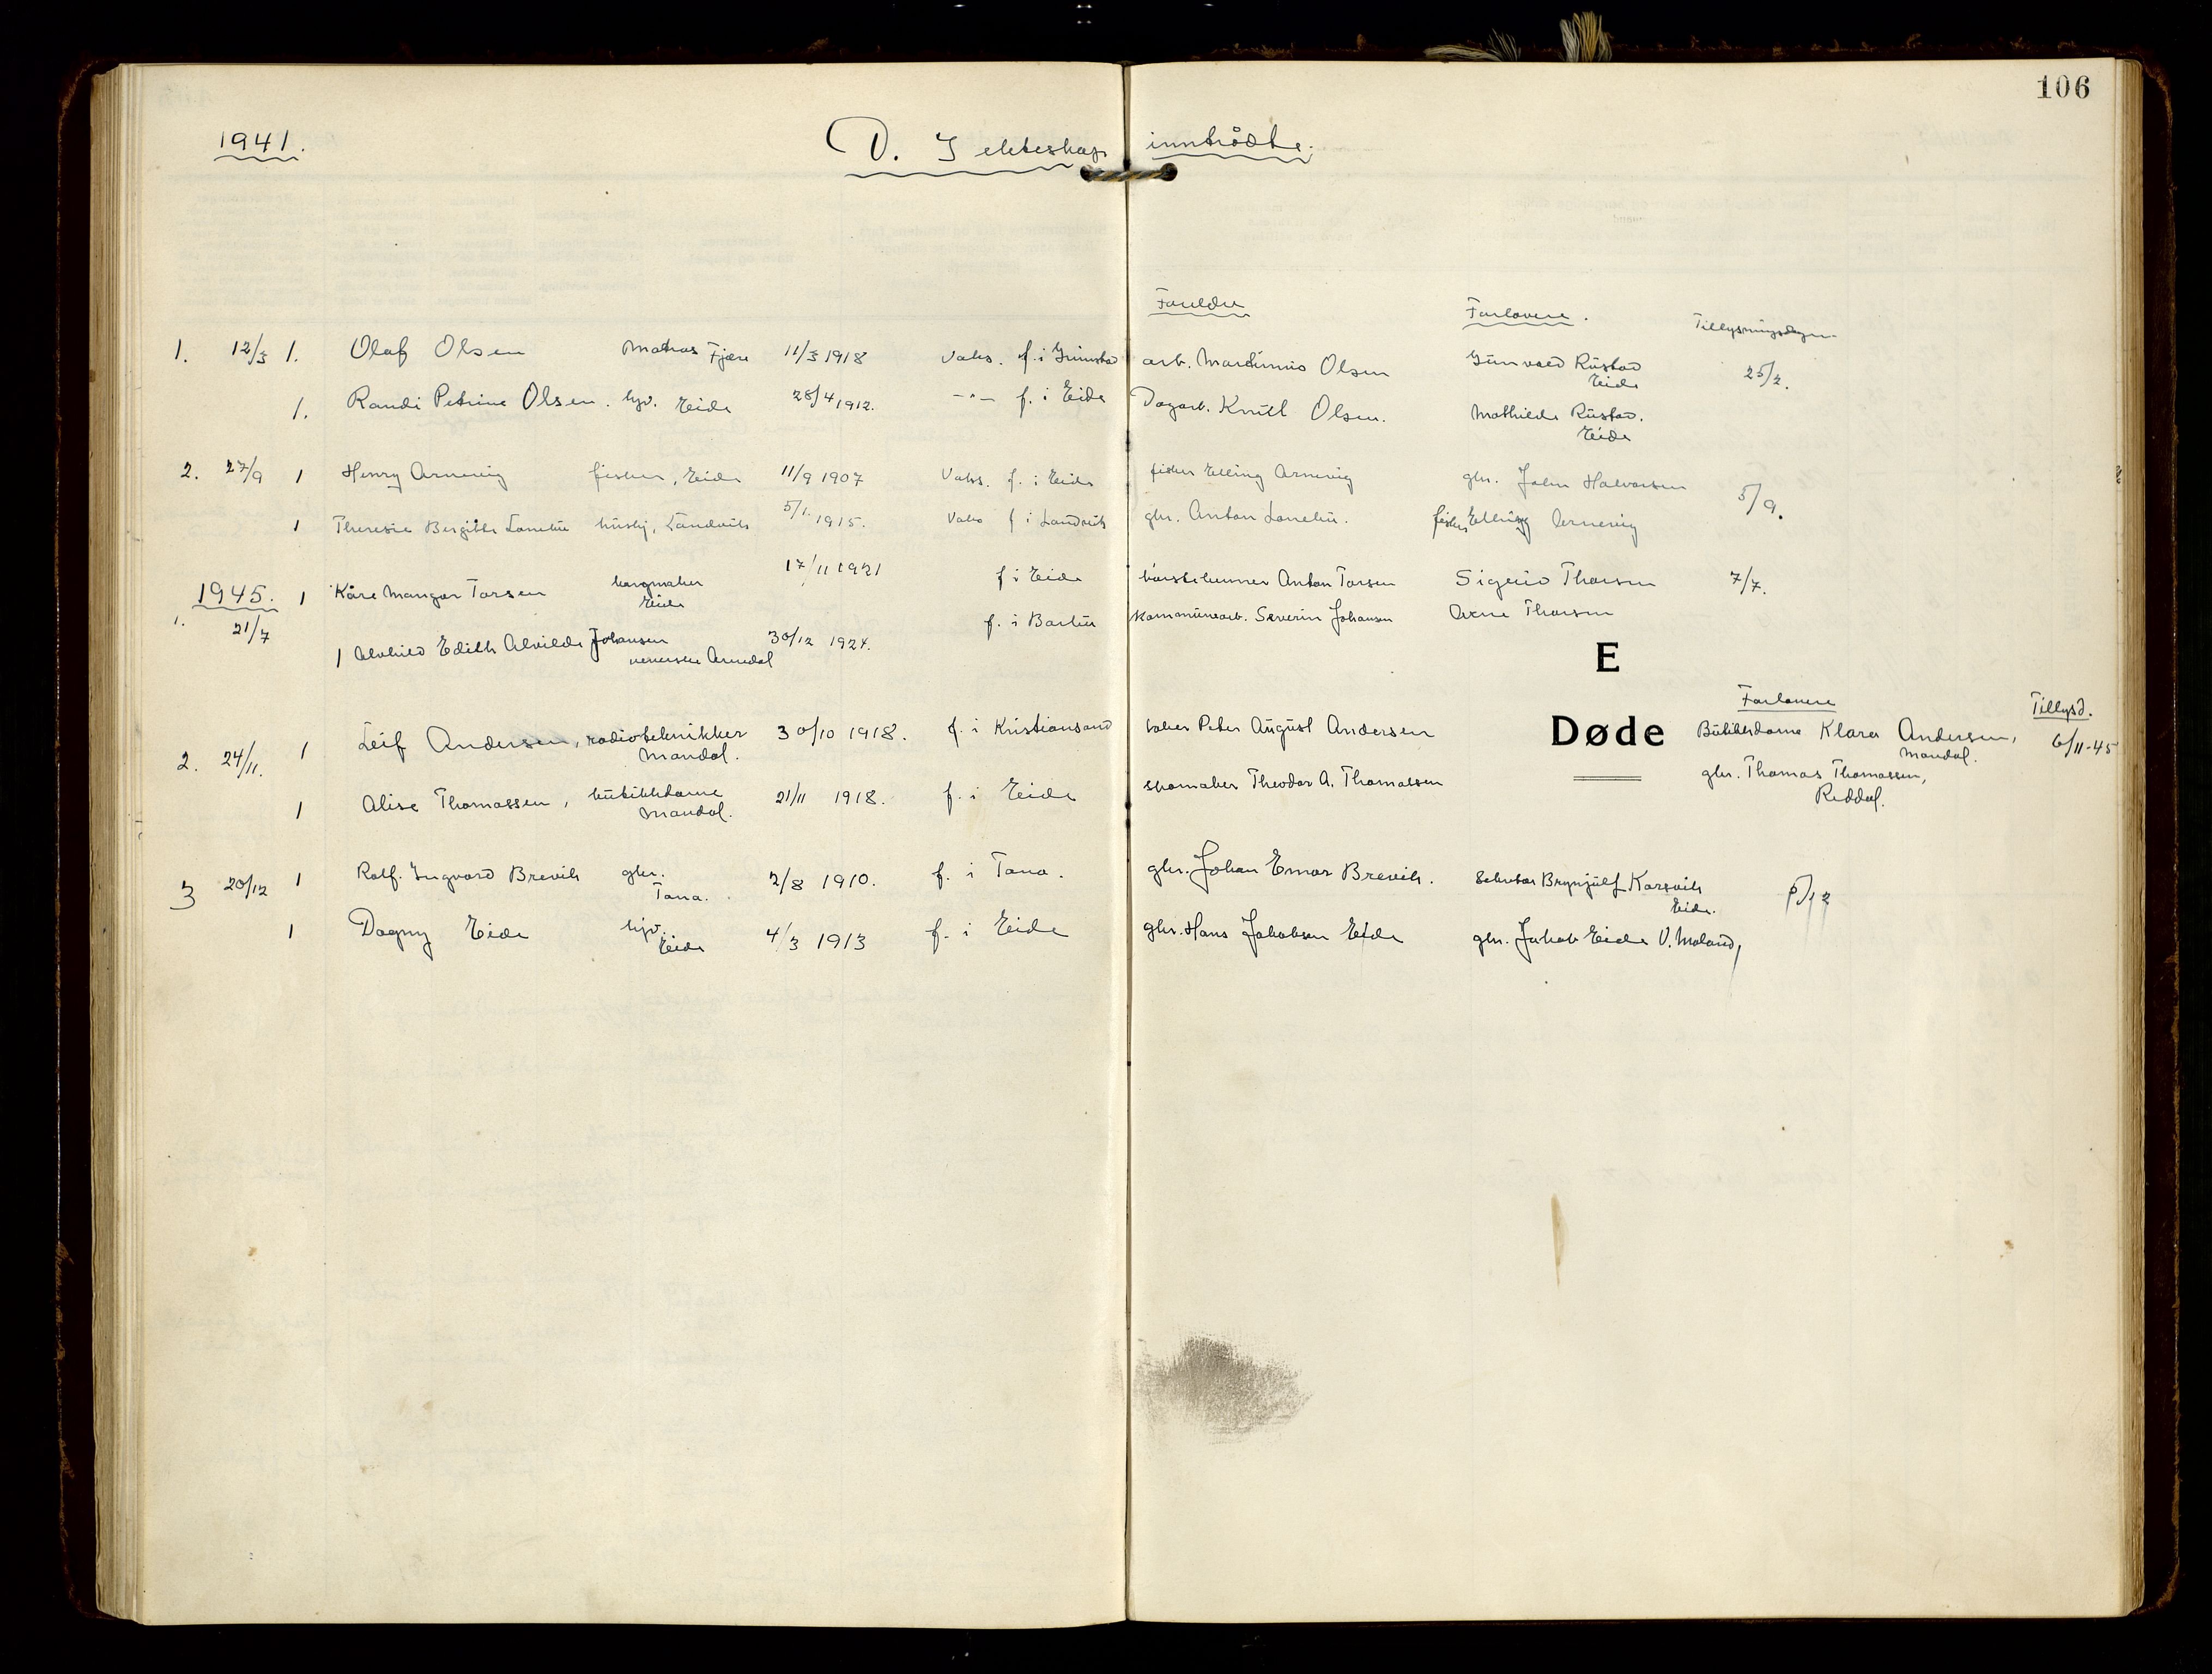 106
1941.
D. I ekteskap inntrådte.
Foreldre Forlovere. Tillysningsdagen
1. 12/3 1. Olaf Olsen Matros Fjære 11/3 1918 Vaks. f. i Grimstad arb. Martinius Olsen Gunvald Rustad Eide 25/2.
1. Randi Petrine Olsen. hjv. Eide 28/4 1912. -"- f. i Eide Dagarb. Knut Olsen. Mathilde Rustad. Eide
2. 27/9 1 Henry Arnevig fisker, Eide 11/9 1907 Vaks. f. i Eide fisker Elling Arnevig gbr. John Halvorsen 5/9.
1 Theresie Bergitte Landvik 5/1 1915. Vaks f i Landvik gbr. Anton fisker Elling Arnevig
1945. 1 Kåre Mangor Torsen Eide 17/11 1921 f i Eide Anton Torsen Sigurd Thorsen 7/7.
1. 21/7
1 Alvhild Edith Alvilde Johansen Arendal 30/12 1924. f. i Barbu Kommunearb. Severin Johansen Arne Thorsen
E
Døde
Forlovere Tillysd.
2. 24/11. 1 Leif Andersen, radiotekniker Mandal. 30/10 1918. f. i Kristiansand baker Peter August Andersen Butikkdame Klara Andersen, Mandal. 6/11-45
1 Alise Thomassen, butikkdame Mandal. 21/11 1918. f. i Eide skomaker Theodor A. Thomassen gbr. Thomas Thomassen, Reddal.
3 20/12 1 Rolf. Ingvard Brevik gbr. Tana. 2/8 1910. f. i Tana. gbr. Johan Brevik. Brynjulf Karsvik Eide.
1 Dagny Eide hjv. Eide 4/3 1913 f. i Eide gbr. Hans Jakobsen Eide gbr. Jakob Eide V. Moland,